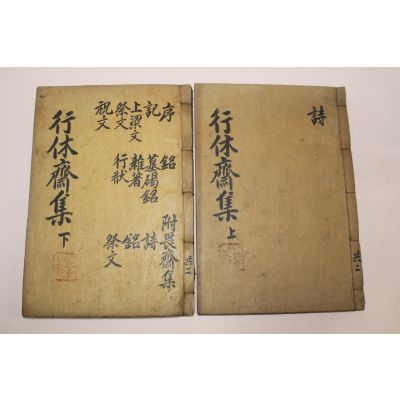 詩
行休齋集 上
共二
序 銘 附畏齋集
記 墓碣銘 詩
上梁文 雜著 銘
祭文 行狀 祭文
祝文
行休齋集 下
共二